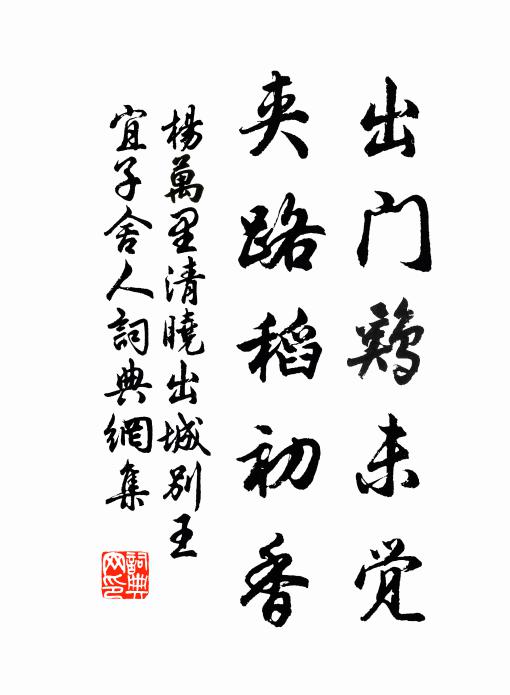 出门鸡未觉
夹路稻初香
楊萬里清曉出城別王
宜子舍人詞典網集
詞典
网印